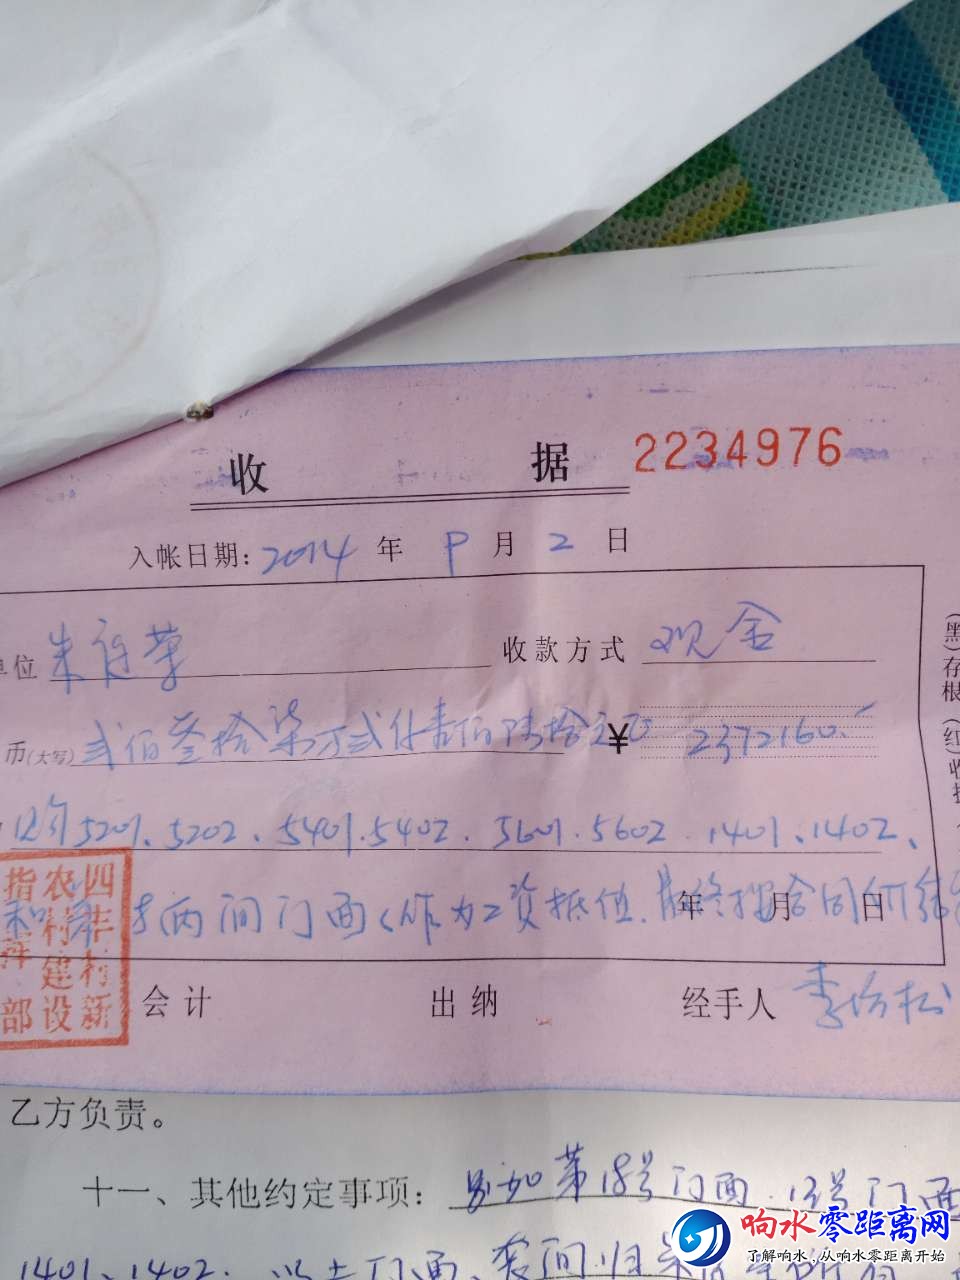 收 据 2234976
入帐日期：2014 年 9 月 2 日
单位 朱 荣 收款方式 现金
币(大写) 贰佰叁拾柒万贰仟壹佰陆拾元正 ¥ 2372160.
5201、5202、5401、5402、5601、5602、1401、1402、
两间门面（作为工资抵值，最终按合同 年 月 日
四 村新农村建设指挥部
会计 出纳 经手人 李 松
(黑)存根 (红)收据
乙方负责。
十一、其他约定事项：另加第18号门面、13号门面
1401、1402、以上门面、套间归
响水零距离网
了解响水，从响水零距离开始